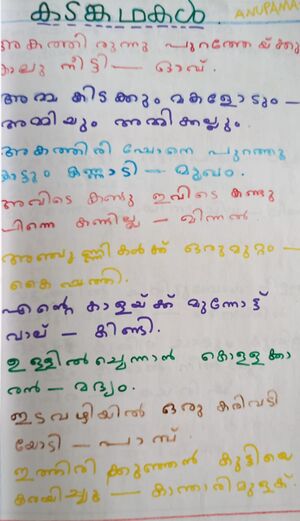 കടങ്കഥകൾ.
ANUPAMA
അകത്തിരുന്നു പുറത്തേയ്ക്കു
കാലു നീട്ടി — ഓവ്.
അമ്മ കിടക്കും മകളോടും —
അമ്മിയും അമ്മിക്കല്ലും.
അകത്തിരിപ്പോനെ പുറത്തു
കാട്ടും കണ്ണാടി — മുഖം.
അവിടെ കണ്ടു ഇവിടെ കണ്ടു
പിന്നെ കണ്ടില്ല — മിന്നൽ
അഞ്ചുണ്ണികൾക്ക് ഒരുമുറ്റം —
കൈപ്പത്തി.
എന്റെ കാളയ്ക്ക് മുന്നോട്ട്
വാല് — കിണ്ടി.
ഉള്ളിൽ ചെന്നാൽ കൊള്ളക്കാ
രൻ — മദ്യം.
ഇടവഴിയിൽ ഒരു കരിവടി
യോടി — പാമ്പ്
ഇത്തിരി ക്കുഞ്ഞൻ കുട്ടിയെ
കരയിച്ചു — കാന്താരിമുളക്.